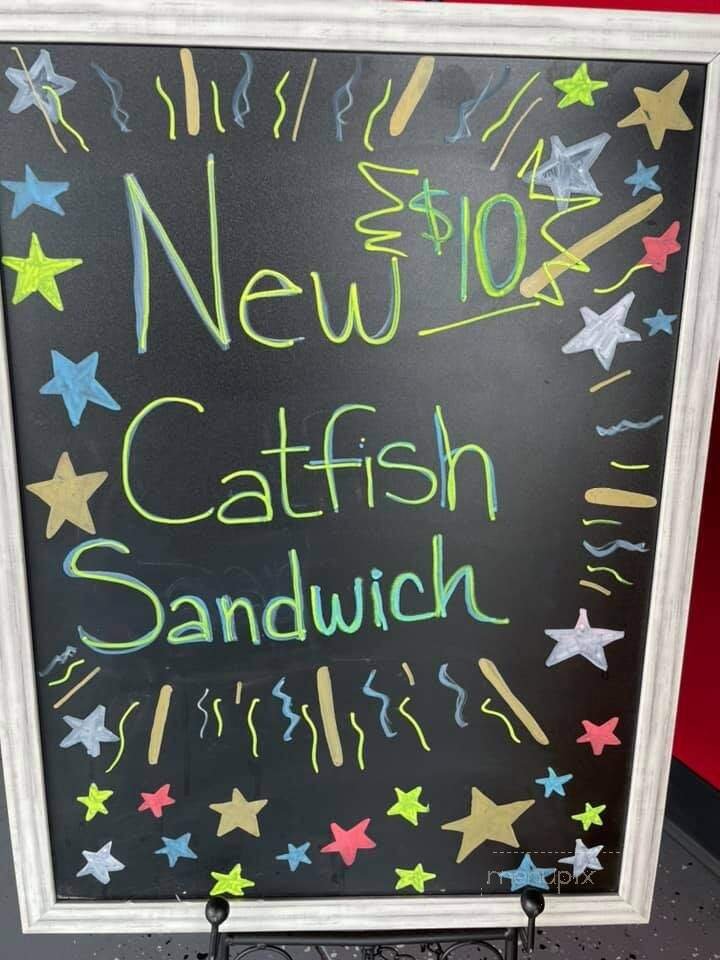 New $10
Catfish
Sandwich
menupix